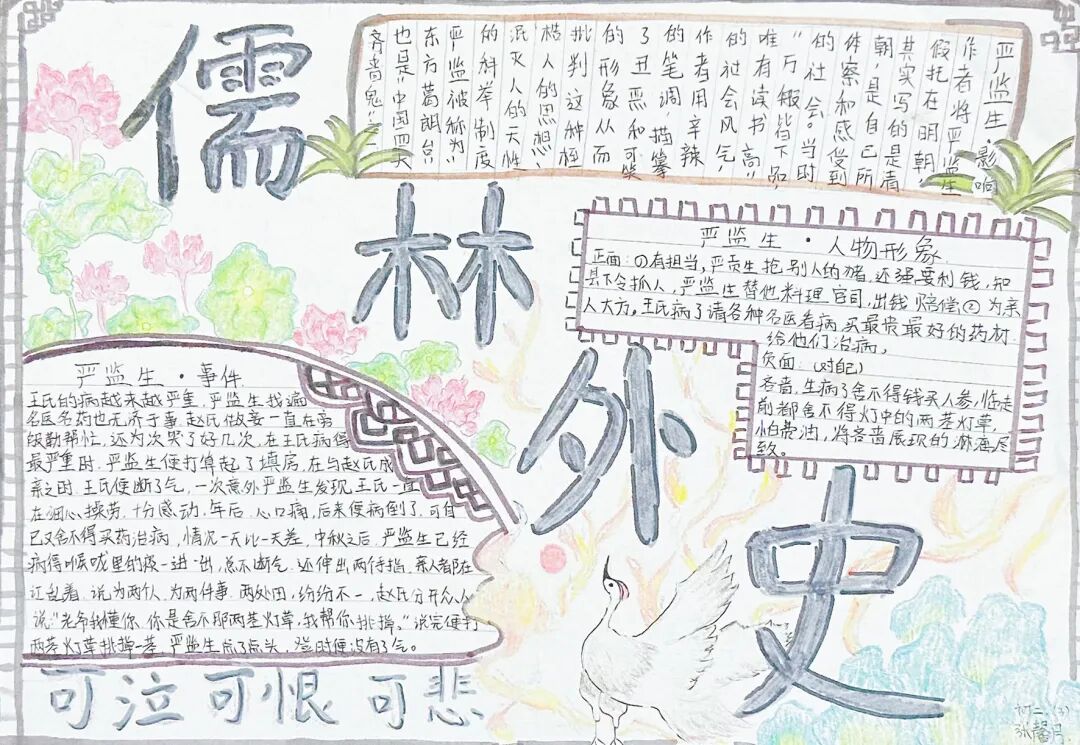 儒
林
外
史
严监生·影响
作者将严监生
假托在明朝,
其实写的是清
朝,是自己所
体察和感受到
的社会。当时
“万般皆下品,
唯有读书高”
的社会风气,
作者用辛辣
的笔调,描摹
了丑恶和可笑
的形象从而
批判这种桎
梏人的思想
泯灭人的天性
的科举制度
严监被称为
东方葛朗台
也是“中国四大
吝啬鬼”之一
严监生·人物形象
正面:①有担当,严贡生抢别人的猪,还强要利钱,知
县下令抓人,严监生替他料理官司,出钱赔偿②为亲
人大方。王氏病了请各种名医看病,买最贵最好的药材
给他们治病,
负面:(对自己)
吝啬,生病了舍不得钱买人参,临走
前都舍不得灯中的两茎灯草,
怕费油,将吝啬展现的淋漓尽
致。
严监生·事件
王氏的病越来越严重,严监生找遍
名医名药也无济于事,赵氏做妾一直在旁
殷勤帮忙,还为次哭了好几次,在王氏病得
最严重时,严监生便打算起了填房,在与赵氏成
亲之时,王氏便断了气,一次意外严监生发现,王氏一直
在细心操劳,十分感动,年后,心口痛,后来便病倒了,可自
己又舍不得买药治病,情况一天比一天差,中秋之后,严监生已经
病得喉咙里的痰一进一出,总不断气,还伸出两个手指,亲人都在
让乱着,说为两个人,为两件事,两处田,纷纷不一,赵氏分开众人
说“老爷我懂你,你是舍不那两茎灯草,我帮你挑掉,”说完便打
两茎灯草挑掉一茎,严监生点了点头,登时便没有了气。
可泣可恨可悲
初二(3)
张馨月